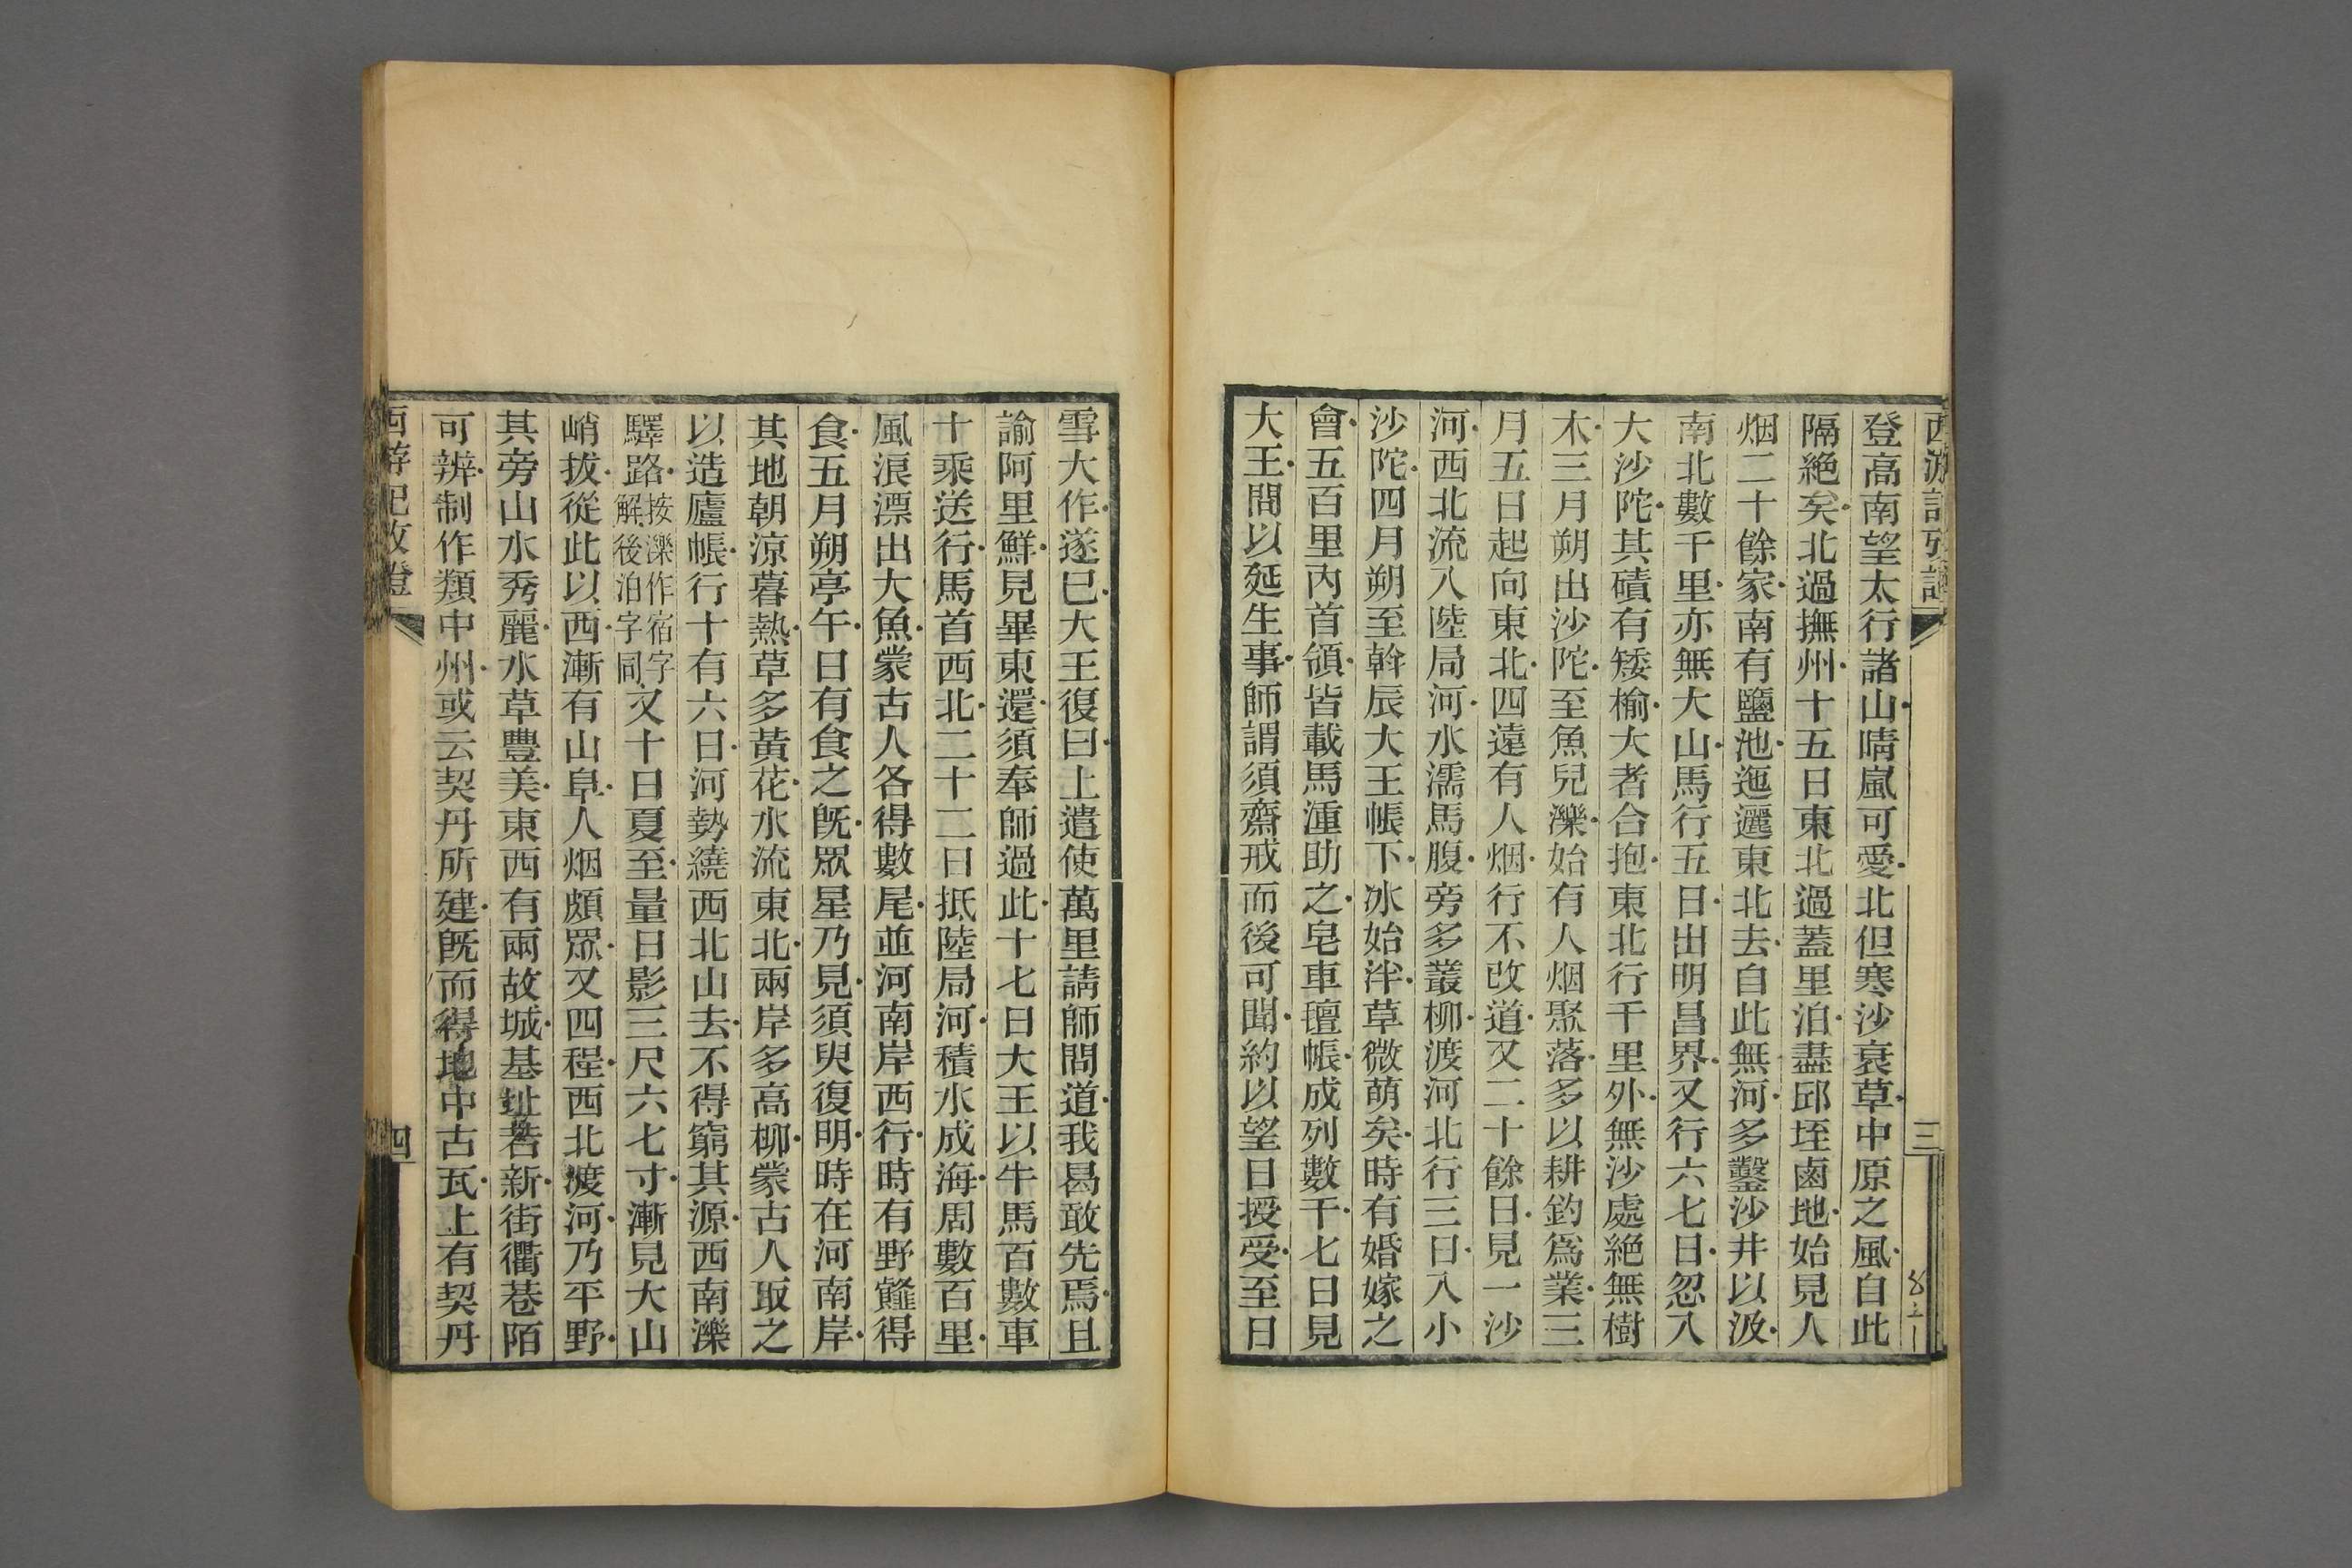 登高南望太行諸山晴嵐可愛北但寒沙衰草中原之風自此
隔絶矣北過撫州十五日東北過蓋里泊盡邱垤鹵地始見人
烟二十餘家南有鹽池迤邐東北去自此無河多鑿沙井以汲
南北數千里亦無大山馬行五日出明昌界又行六七日忽入
大沙陀其磧有矮榆大者合抱東北行千里外無沙處絶無樹
木三月朔出沙陀至魚兒濼始有人烟聚落多以耕釣爲業三
月五日起向東北四遠有人烟行不改道又二十餘日見一沙
河西北流入陸局河水濡馬腹旁多叢柳渡河北行三日入小
沙陀四月朔至斡辰大王帳下冰始泮草微萌矣時有婚嫁之
會五百里內首領皆載馬湩助之皂車氊帳成列數千七日見
大王問以延生事師謂須齋戒而後可聞約以望日授受至日
三
雪大作遂已大王復曰上遣使萬里請師問道我曷敢先焉且
諭阿里鮮見畢東還須奉師過此十七日大王以牛馬百數車
十乘送行馬首西北二十二日抵陸局河積水成海周數百里
風浪漂出大魚蒙古人各得數尾並河南岸西行時有野薤得
食五月朔亭午日有食之旣眾星乃見須臾復明時在河南岸
其地朝涼暮熱草多黃花水流東北兩岸多高柳蒙古人取之
以造廬帳行十有六日河勢繞西北山去不得窮其源西南濼
驛路按濼作宿字解後泊字同又十日夏至量日影三尺六七寸漸見大山
峭拔從此以西漸有山阜人烟頗眾又四程西北渡河乃平野
其旁山水秀麗水草豐美東西有兩故城基址若新街衢巷陌
可辨制作類中州或云契丹所建旣而得地中古瓦上有契丹
西游記攷證
四